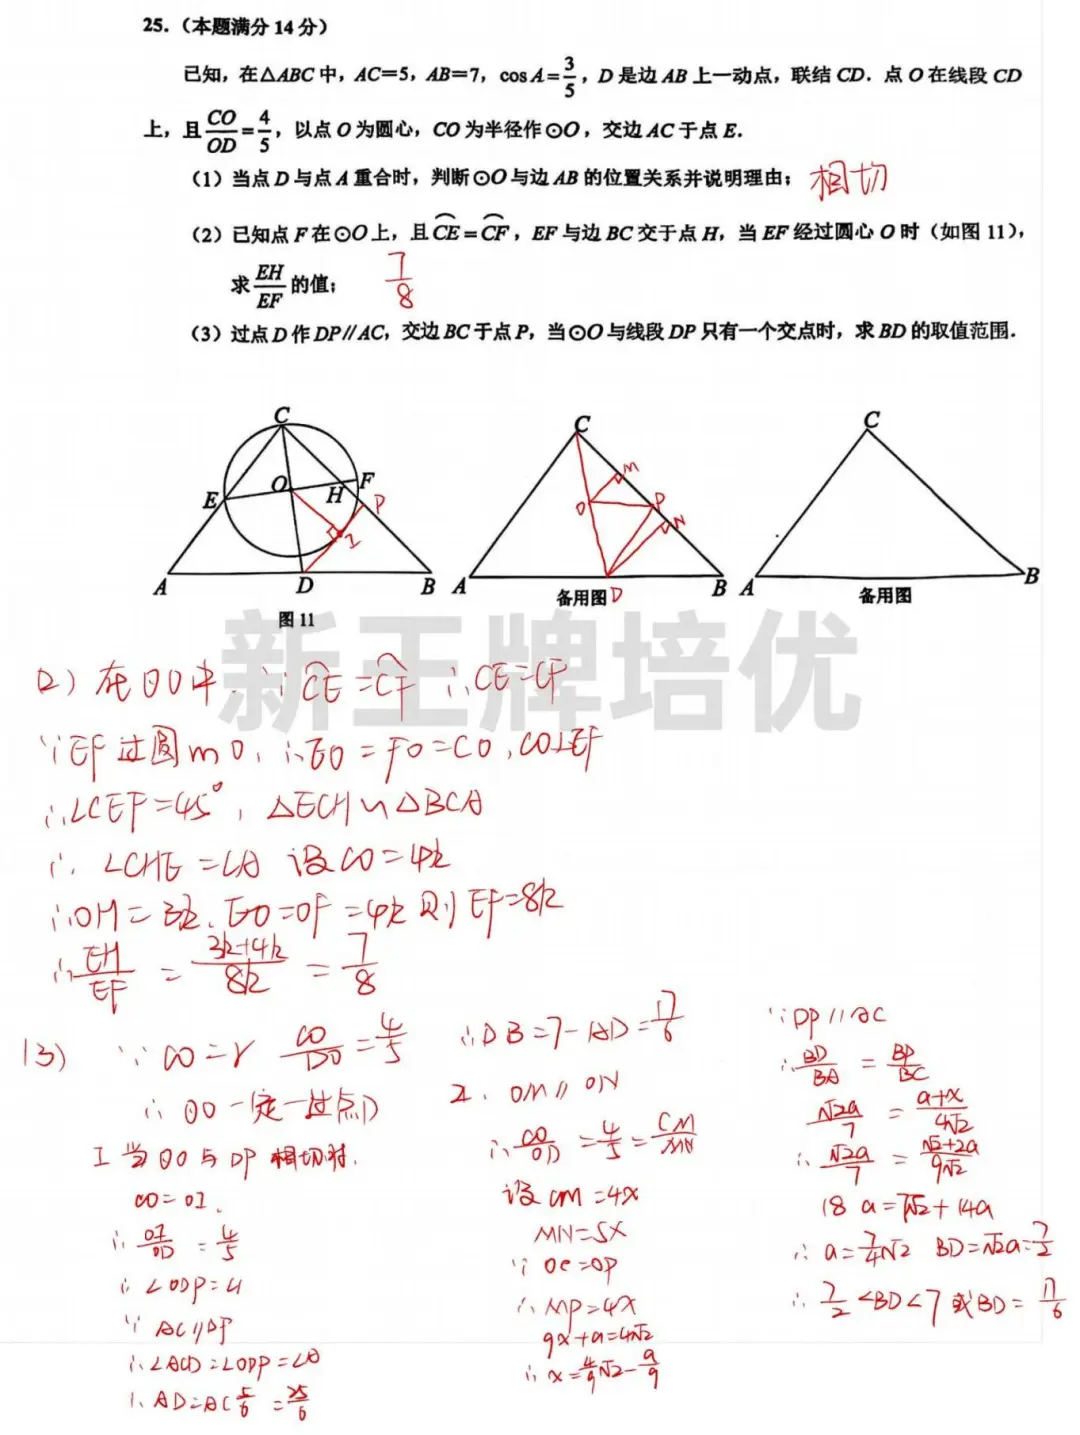 25.（本题满分 14 分）
已知，在△ABC 中，AC=5，AB=7，cos A=3/5，D 是边 AB 上一动点，联结 CD．点 O 在线段 CD
上，且 CO/OD=4/5，以点 O 为圆心，CO 为半径作⊙O，交边 AC 于点 E．
（1）当点 D 与点 A 重合时，判断⊙O 与边 AB 的位置关系并说明理由；相切
（2）已知点 F 在⊙O 上，且⌒CE=⌒CF，EF 与边 BC 交于点 H，当 EF 经过圆心 O 时（如图 11），
求 EH/EF 的值；7/8
（3）过点 D 作 DP∥AC，交边 BC 于点 P，当⊙O 与线段 DP 只有一个交点时，求 BD 的取值范围．
C
E O H F P
I
A D B
图 11
C
M
O P
N
A D B
备用图
C
A B
备用图
新王牌培优
2) 在⊙O中 ∵⌒CE=⌒CF ∴CE=CF
∵EF过圆心O, ∴EO=FO=CO, CO⊥EF
∴∠CEF=45°, △ECH∽△BCA
∴∠CHE=∠A 设CO=4k
∴OH=3k, EO=OF=4k 则EF=8k
∴EH/EF=(3k+4k)/8k=7/8
(3) ∵CO=r CO/DO=4/5
∴⊙O一定过点
I 当⊙O与DP相切时.
CO=OI.
∴OI/OD=4/5
∴∠ODP=∠A
∵AC∥DP
∴∠ACD=∠ODP=∠A
∴AD=AC 5/6=25/6
∴DB=7-AD=17/6
2. OM∥ON
∴CO/OD=4/5=CM/MN
设CM=4x
MN=5x
∵OC=OP
∴MP=4x
9x+a=4√2
∴x=4/9√2-a/9
∵DP∥AC
∴BD/BA=BP/BC
√2a/7=(a+x)/4√2
18a=7√2+14a
∴a=7/4√2 BD=√2a=7/2
∴7/2<BD<7 或BD=17/6